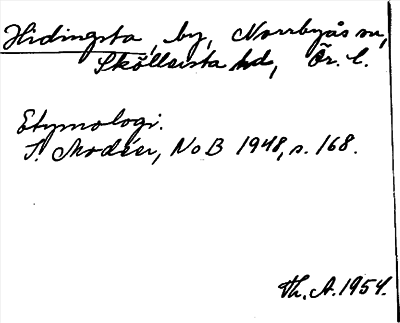 Hidingsta, by, Norrbyås sn,
Sköllersta hd, Ör. l.
Etymologi.
I. Modéer, NoB 1948, s. 168.
Th. A. 1954.